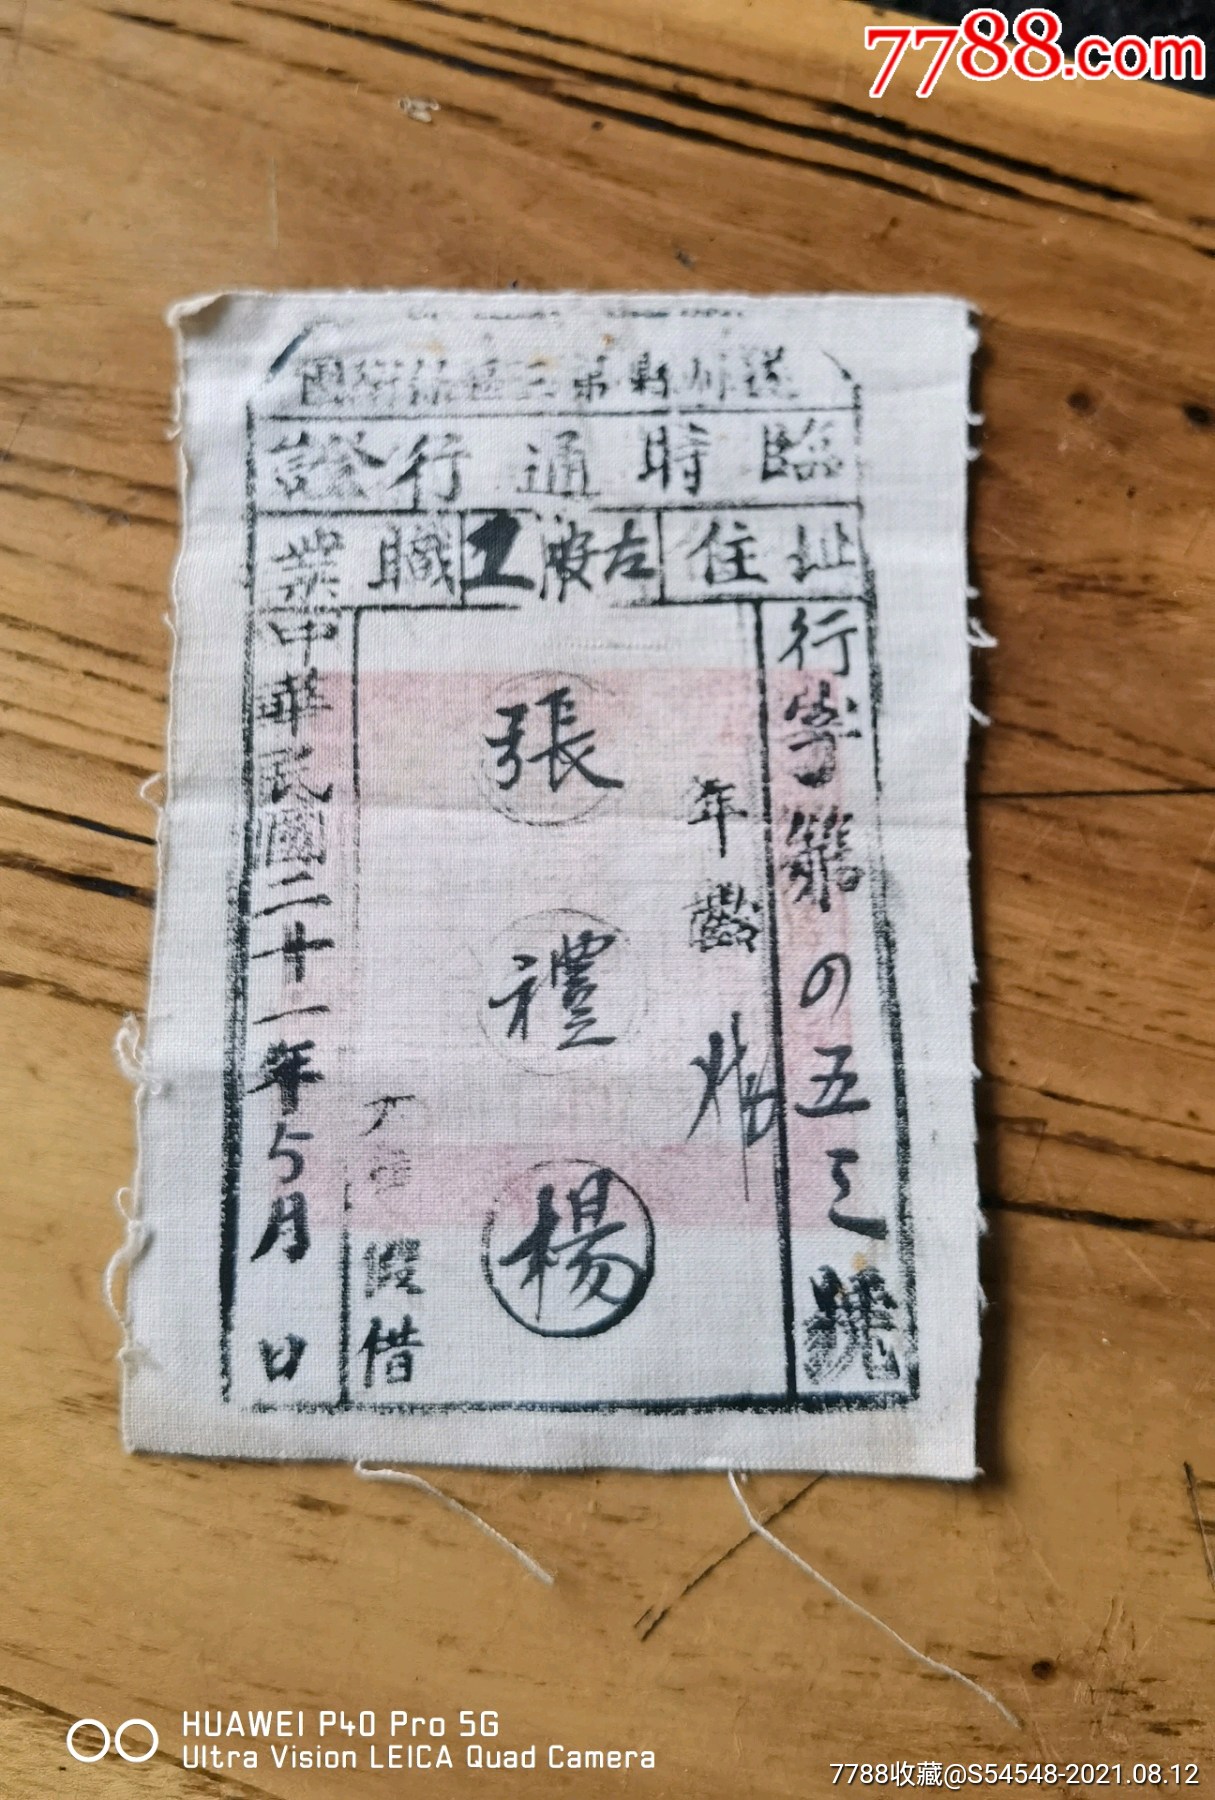 7788.com
遂川縣第三區
臨時通行證
住址
左股
工
職業
行字第の五三號
年齡
張
禮
楊
假借
中華民國二十一年5月 日
HUAWEI P40 Pro 5G
Ultra Vision LEICA Quad Camera
7788收藏@S54548-2021.08.12